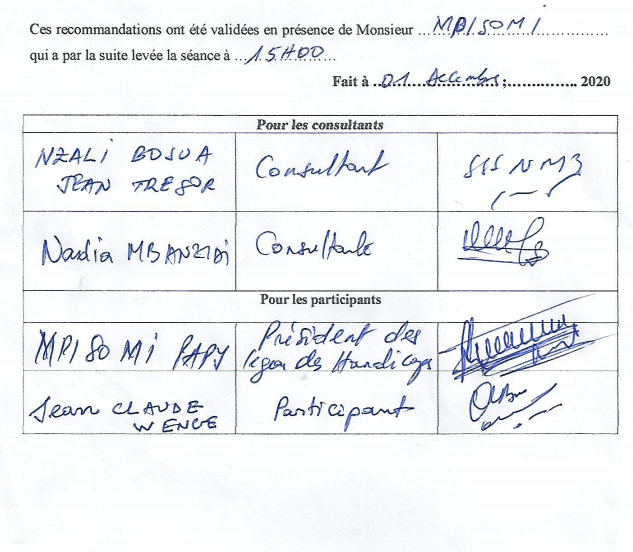 Ces recommandations ont été validées en présence de Monsieur ...MPISOMI...
qui a par la suite levée la séance à ...15H00...
Fait à ..01..Décembre;........... 2020
Pour les consultants
NZALI BOSUA
JEAN TRESOR
Consultant
Nadia MBANZIDI
Consultante
Pour les participants
MPISOMI PAPY
Président des
Jean CLAUDE
WENGE
Participant